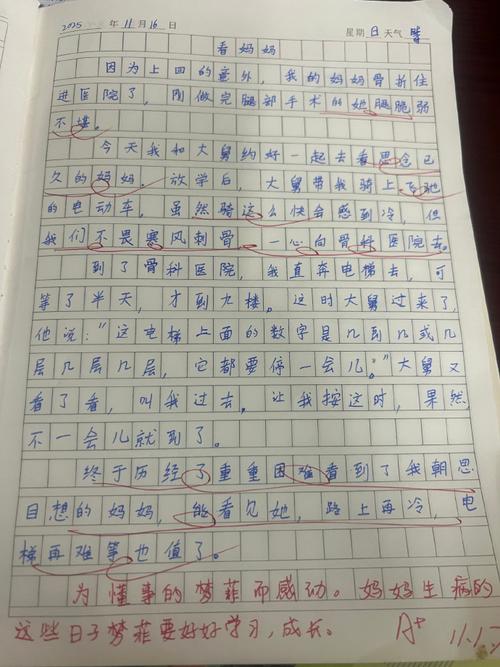 2025 年 11 月 16 日 星期 日 天气 晴
看妈妈
因为上回的意外，我的妈妈骨折住
进医院了，刚做完腿部手术的她腿脆弱
不堪。
今天我和大舅约好一起去看思念已
久的妈妈。放学后，大舅带我骑上飞驰
的电动车，虽然骑这么快会感到冷，但
我们不畏寒风刺骨，一心向骨科医院去。
到了骨科医院，我直奔电梯去，可
等了半天，才到九楼。这时大舅过来了，
他说："这电梯上面的数字是几到几或几
层几层几层，它都要停一会儿。"大舅又
看了看，叫我过去，让我按这时，果然，
不一会儿就到了。
终于历经了重重困难看到了我朝思
目想的妈妈，能看见她，路上再冷，电
梯再难等也值了。
为懂事的梦菲而感动。妈妈生病的
这些日子梦菲要好好学习，成长。 A+ 11.17